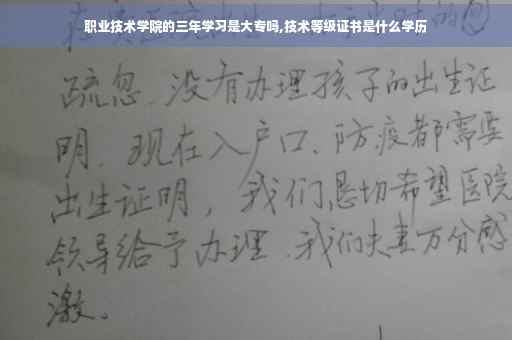 职业技术学院的三年学习是大专吗,技术等级证书是什么学历
疏忽、没有办理孩子的出生证
明、现在入户口、防疫都需要
出生证明，我们恳切希望医院
领导给予办理、我们夫妻万分感
激。